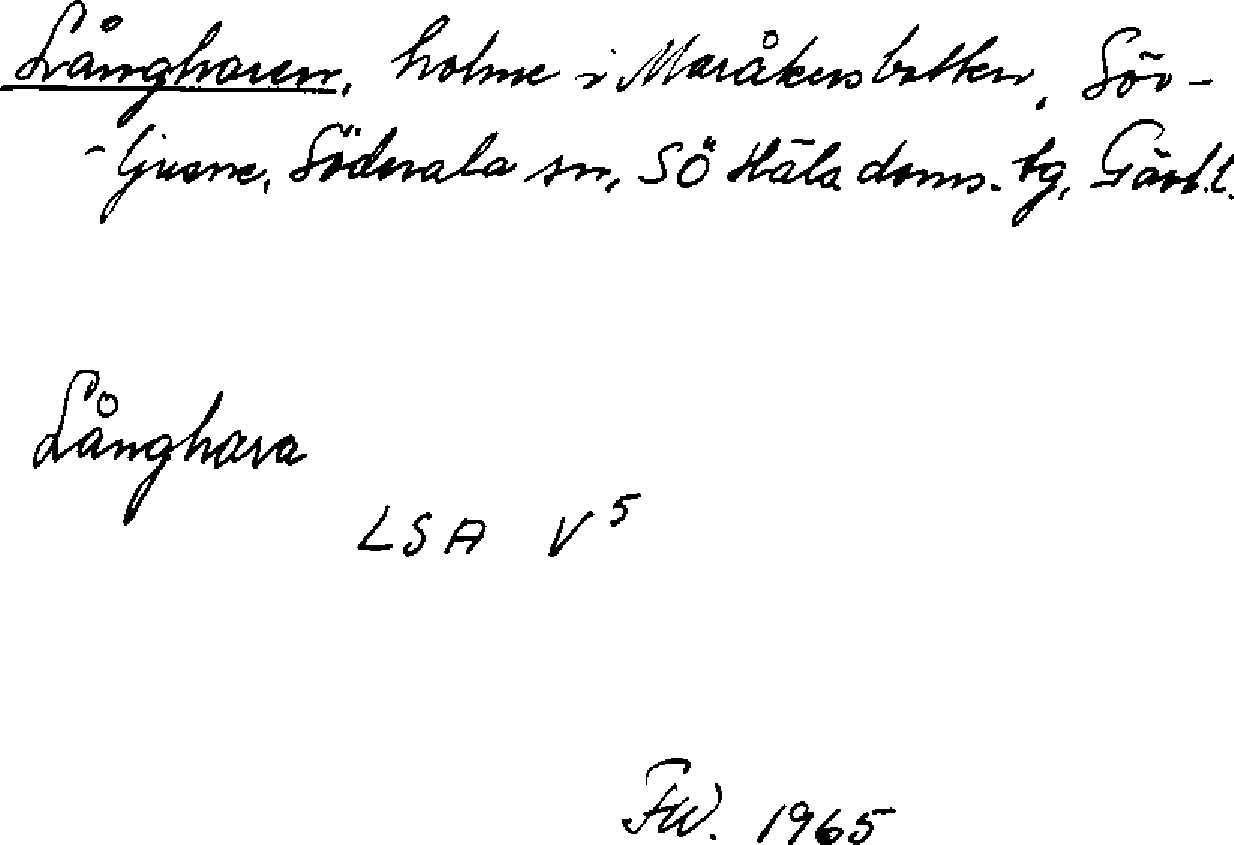 Långharen, holme i Maråkersbotten, Sör-
-ljusne, Söderala sn, SÖ Häls. doms. tg, Gävl.l.
Långhara
LSA V5
FW. 1965